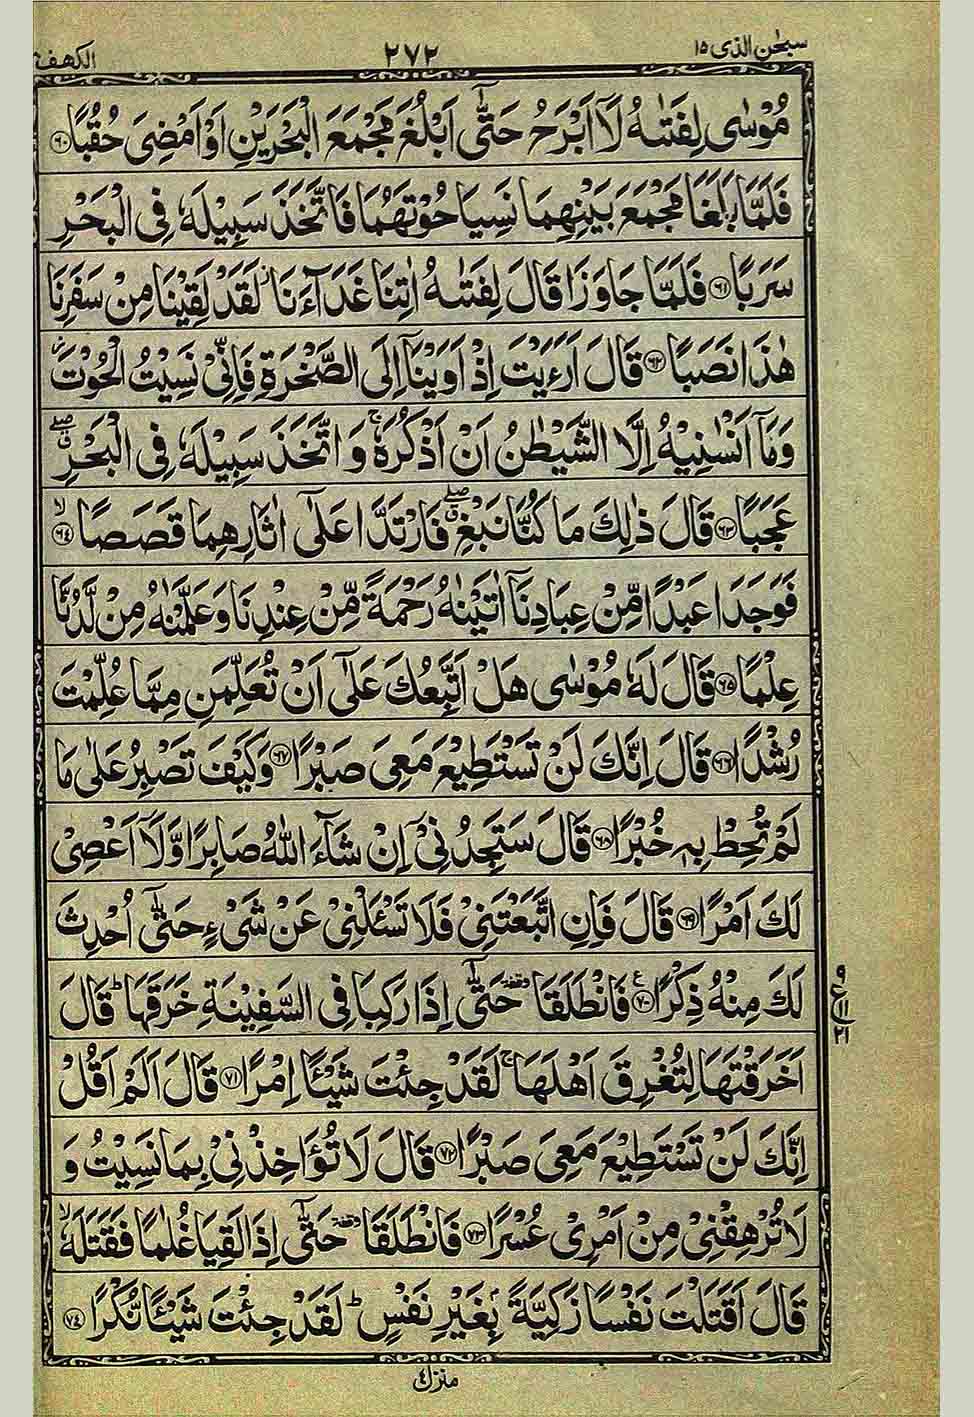 سبحٰن الذی ۱۵ ۲۷۲ الکهف
مُوْسٰى لِفَتٰىهُ لَاۤ اَبْرَحُ حَتّٰۤى اَبْلُغَ مَجْمَعَ الْبَحْرَيْنِ اَوْ اَمْضِيَ حُقُبًا ﴿۶۰﴾
فَلَمَّا بَلَغَا مَجْمَعَ بَيْنِهِمَا نَسِيَا حُوْتَهُمَا فَاتَّخَذَ سَبِيْلَهٗ فِى الْبَحْرِ
سَرَبًا ﴿۶۱﴾ فَلَمَّا جَاوَزَا قَالَ لِفَتٰىهُ اٰتِنَا غَدَآءَنَا ز لَقَدْ لَقِيْنَا مِنْ سَفَرِنَا
هٰذَا نَصَبًا ﴿۶۲﴾ قَالَ اَرَءَيْتَ اِذْ اَوَيْنَاۤ اِلَى الصَّخْرَةِ فَاِنِّىْ نَسِيْتُ الْحُوْتَ ز
وَمَاۤ اَنْسٰنِيْهُ اِلَّا الشَّيْطٰنُ اَنْ اَذْكُرَهٗ ۚ وَاتَّخَذَ سَبِيْلَهٗ فِى الْبَحْرِ ۖق
عَجَبًا ﴿۶۳﴾ قَالَ ذٰلِكَ مَا كُنَّا نَبْغِ ۖق فَارْتَدَّا عَلٰۤى اٰثَارِهِمَا قَصَصًا ۙ﴿۶۴﴾
فَوَجَدَا عَبْدًا مِّنْ عِبَادِنَاۤ اٰتَيْنٰهُ رَحْمَةً مِّنْ عِنْدِنَا وَعَلَّمْنٰهُ مِنْ لَّدُنَّا
عِلْمًا ﴿۶۵﴾ قَالَ لَهٗ مُوْسٰى هَلْ اَتَّبِعُكَ عَلٰۤى اَنْ تُعَلِّمَنِ مِمَّا عُلِّمْتَ
رُشْدًا ﴿۶۶﴾ قَالَ اِنَّكَ لَنْ تَسْتَطِيْعَ مَعِىَ صَبْرًا ﴿۶۷﴾ وَكَيْفَ تَصْبِرُ عَلٰى مَا
لَمْ تُحِطْ بِهٖ خُبْرًا ﴿۶۸﴾ قَالَ سَتَجِدُنِىْۤ اِنْ شَآءَ اللّٰهُ صَابِرًا وَّلَاۤ اَعْصِىْ
لَكَ اَمْرًا ﴿۶۹﴾ قَالَ فَاِنِ اتَّبَعْتَنِىْ فَلَا تَسْـَٔلْنِىْ عَنْ شَىْءٍ حَتّٰۤى اُحْدِثَ
لَكَ مِنْهُ ذِكْرًا ﴿۷۰﴾ ع فَانْطَلَقَا وقفة حَتّٰۤى اِذَا رَكِبَا فِى السَّفِيْنَةِ خَرَقَهَا ؕ قَالَ
۹ ع ۱۱ ۲۱
اَخَرَقْتَهَا لِتُغْرِقَ اَهْلَهَا ۚ لَقَدْ جِئْتَ شَيْـًٔا اِمْرًا ﴿۷۱﴾ قَالَ اَلَمْ اَقُلْ
اِنَّكَ لَنْ تَسْتَطِيْعَ مَعِىَ صَبْرًا ﴿۷۲﴾ قَالَ لَا تُؤَاخِذْنِىْ بِمَا نَسِيْتُ وَ
لَا تُرْهِقْنِىْ مِنْ اَمْرِىْ عُسْرًا ﴿۷۳﴾ فَانْطَلَقَا وقفة حَتّٰۤى اِذَا لَقِيَا غُلٰمًا فَقَتَلَهٗ ۙ
قَالَ اَقَتَلْتَ نَفْسًا زَكِيَّةً ۢ بِغَيْرِ نَفْسٍ ؕ لَقَدْ جِئْتَ شَيْـًٔا نُّكْرًا ﴿۷۴﴾
منزل ٤